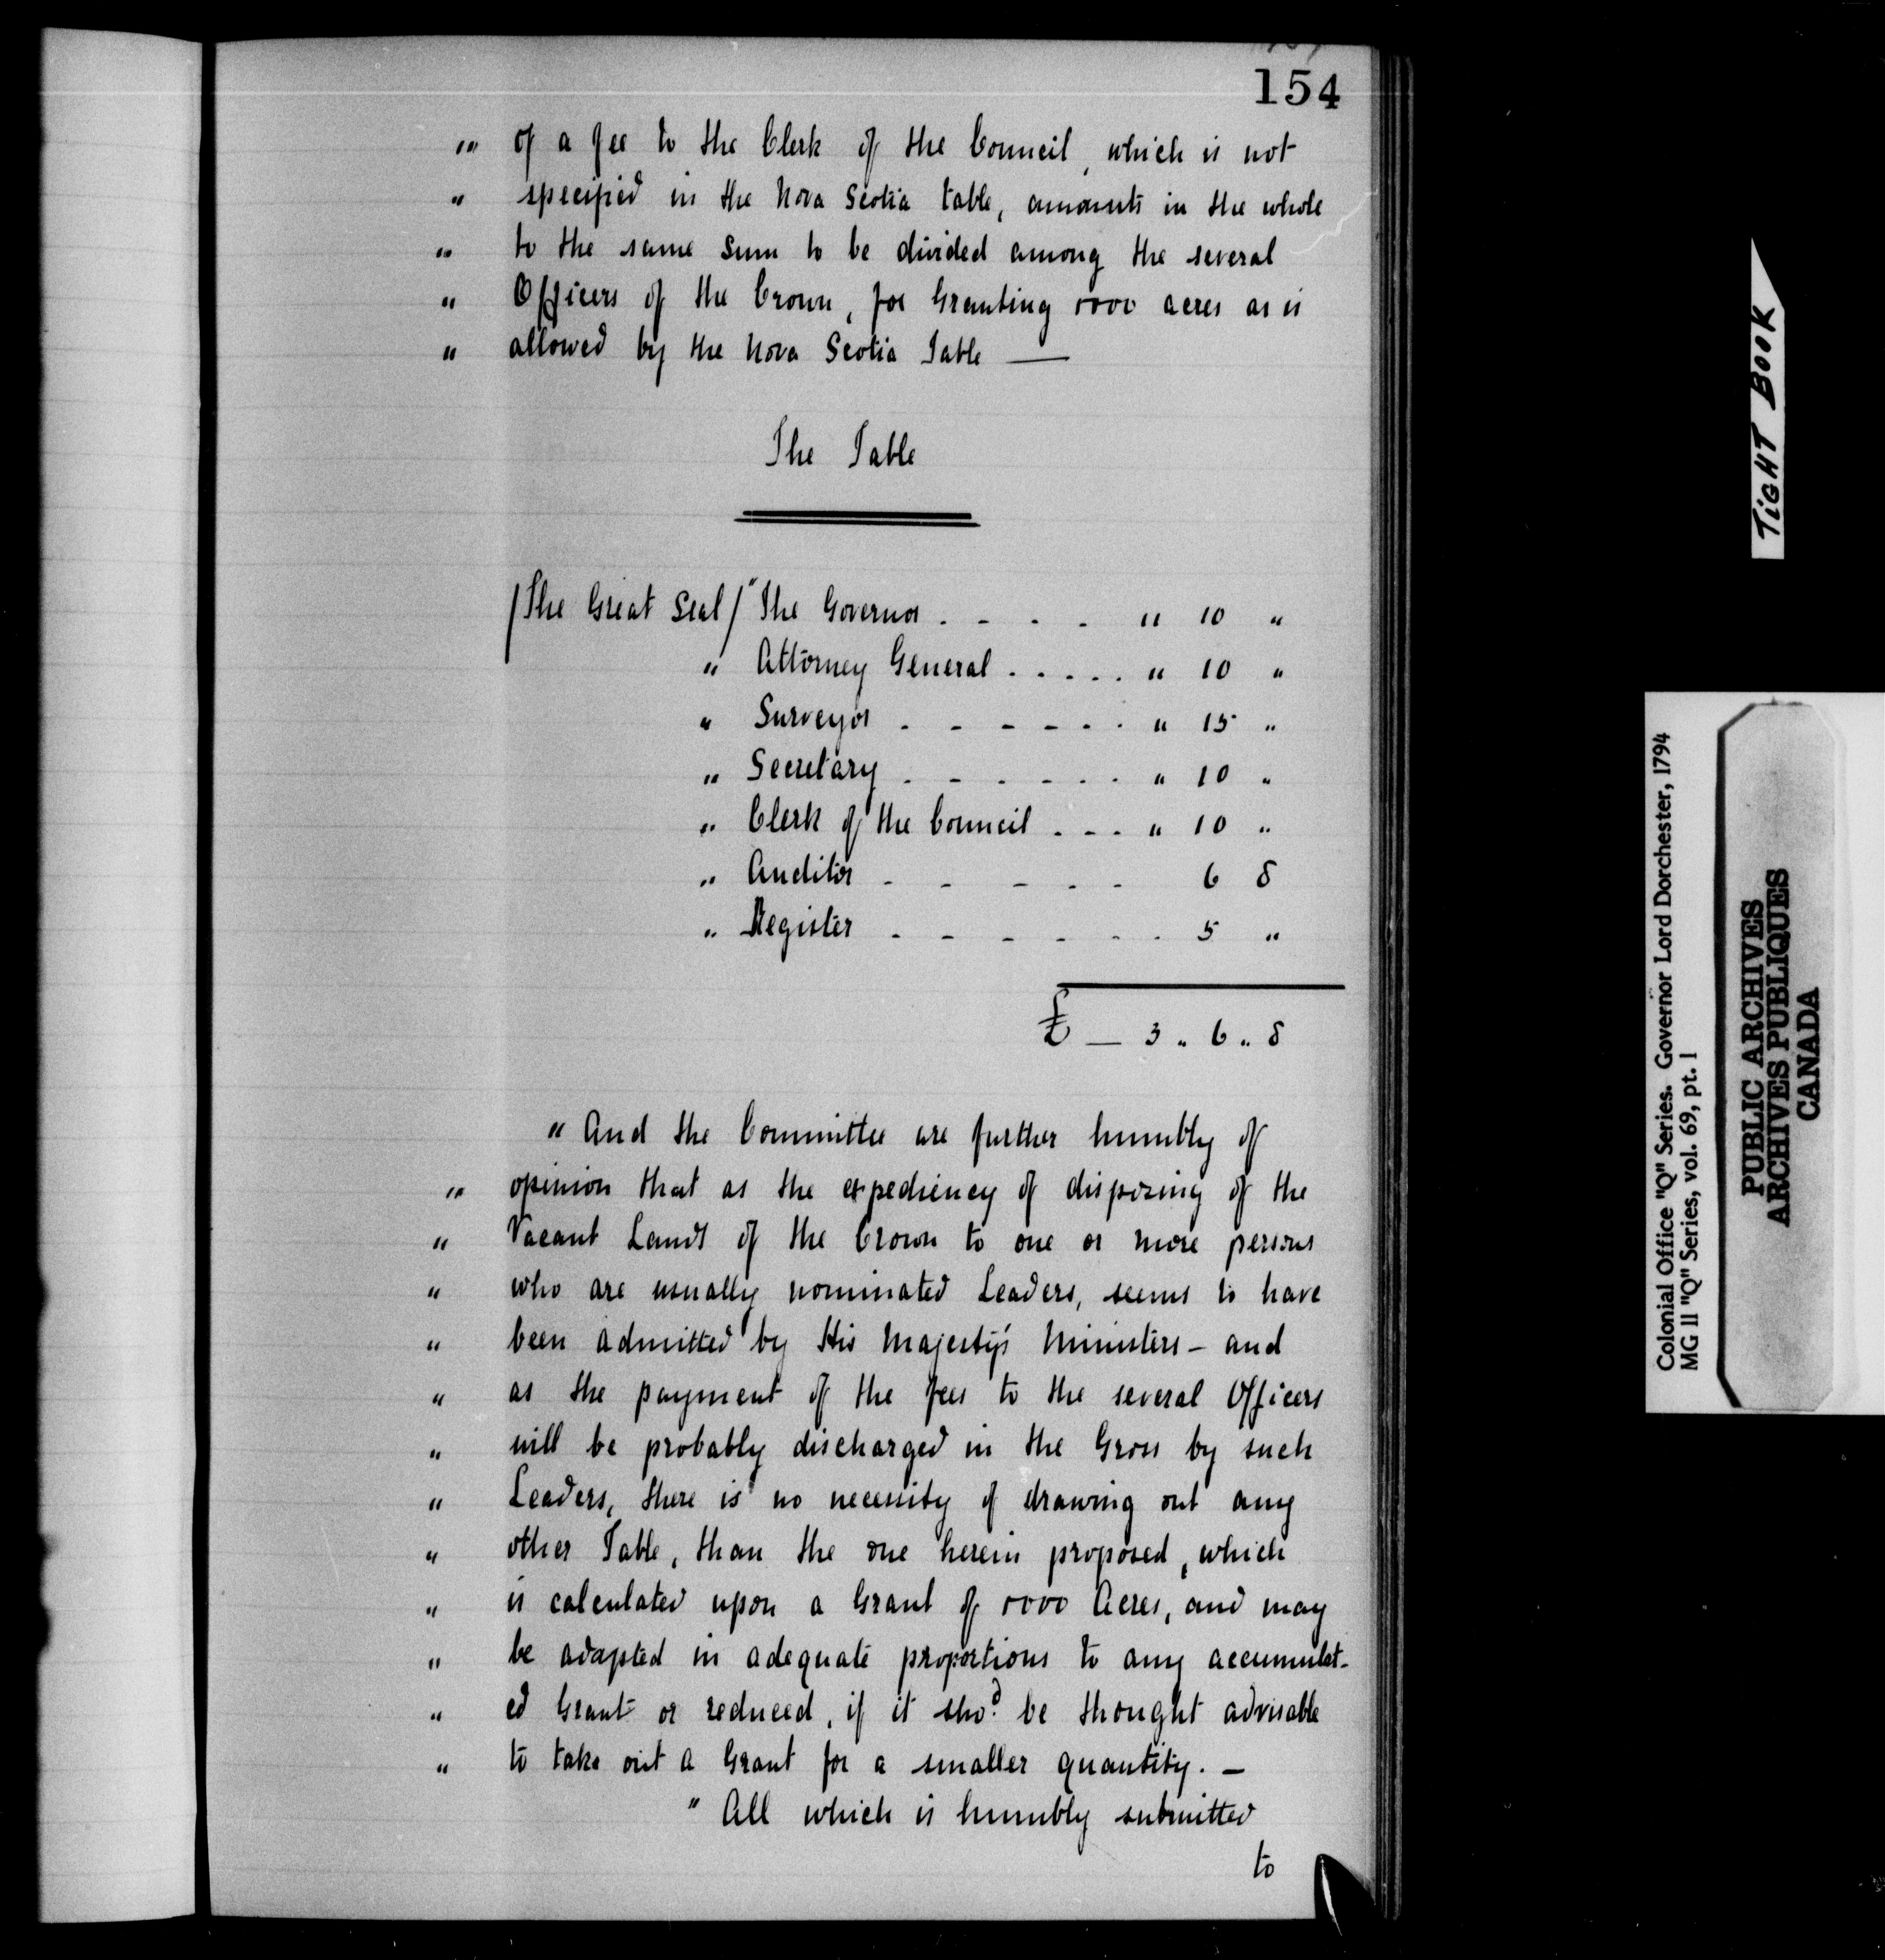 154
"" of a fee to the Clerk of the Council, which is not
" specified in the Nova Scotia table, amounts in the whole
" to the same sum to be divided among the several
" Officers of the Crown, for Granting 1000 acres as is
" allowed by the Nova Scotia Table —
The Table
/The Great Seal/ "The Governor . - . . " 10 "
" Attorney General . . . . . " 10 "
" Surveyor . - - - - . . " 15 "
" Secretary . - - . . . . " 10 "
" Clerk of the Council . - - " 10 "
" Auditor - - - - - 6 8
" Register - - - - - . 5 "
£ — 3 " 6 " 8
" And the Committee are further humbly of
" opinion that as the expediency of disposing of the
" Vacant Lands of the Crown to one or more persons
" who are usually nominated Leaders, seems to have
" been admitted by His Majesty's Ministers - and
" as the payment of the fees to the several Officers
" will be probably discharged in the Gross by such
" Leaders, there is no necessity of drawing out any
" other Table, than the one herein proposed, which
" is calculated upon a Grant of 1000 Acres, and may
" be adapted in adequate proportions to any accumulat-
" ed Grant or reduced, if it shod. be thought advisable
" to take out a Grant for a smaller quantity. —
" All which is humbly submitted
to
TIGHT BOOK
Colonial Office "Q" Series. Governor Lord Dorchester, 1794
MG 11 "Q" Series, vol. 69, pt. 1
PUBLIC ARCHIVES
ARCHIVES PUBLIQUES
CANADA